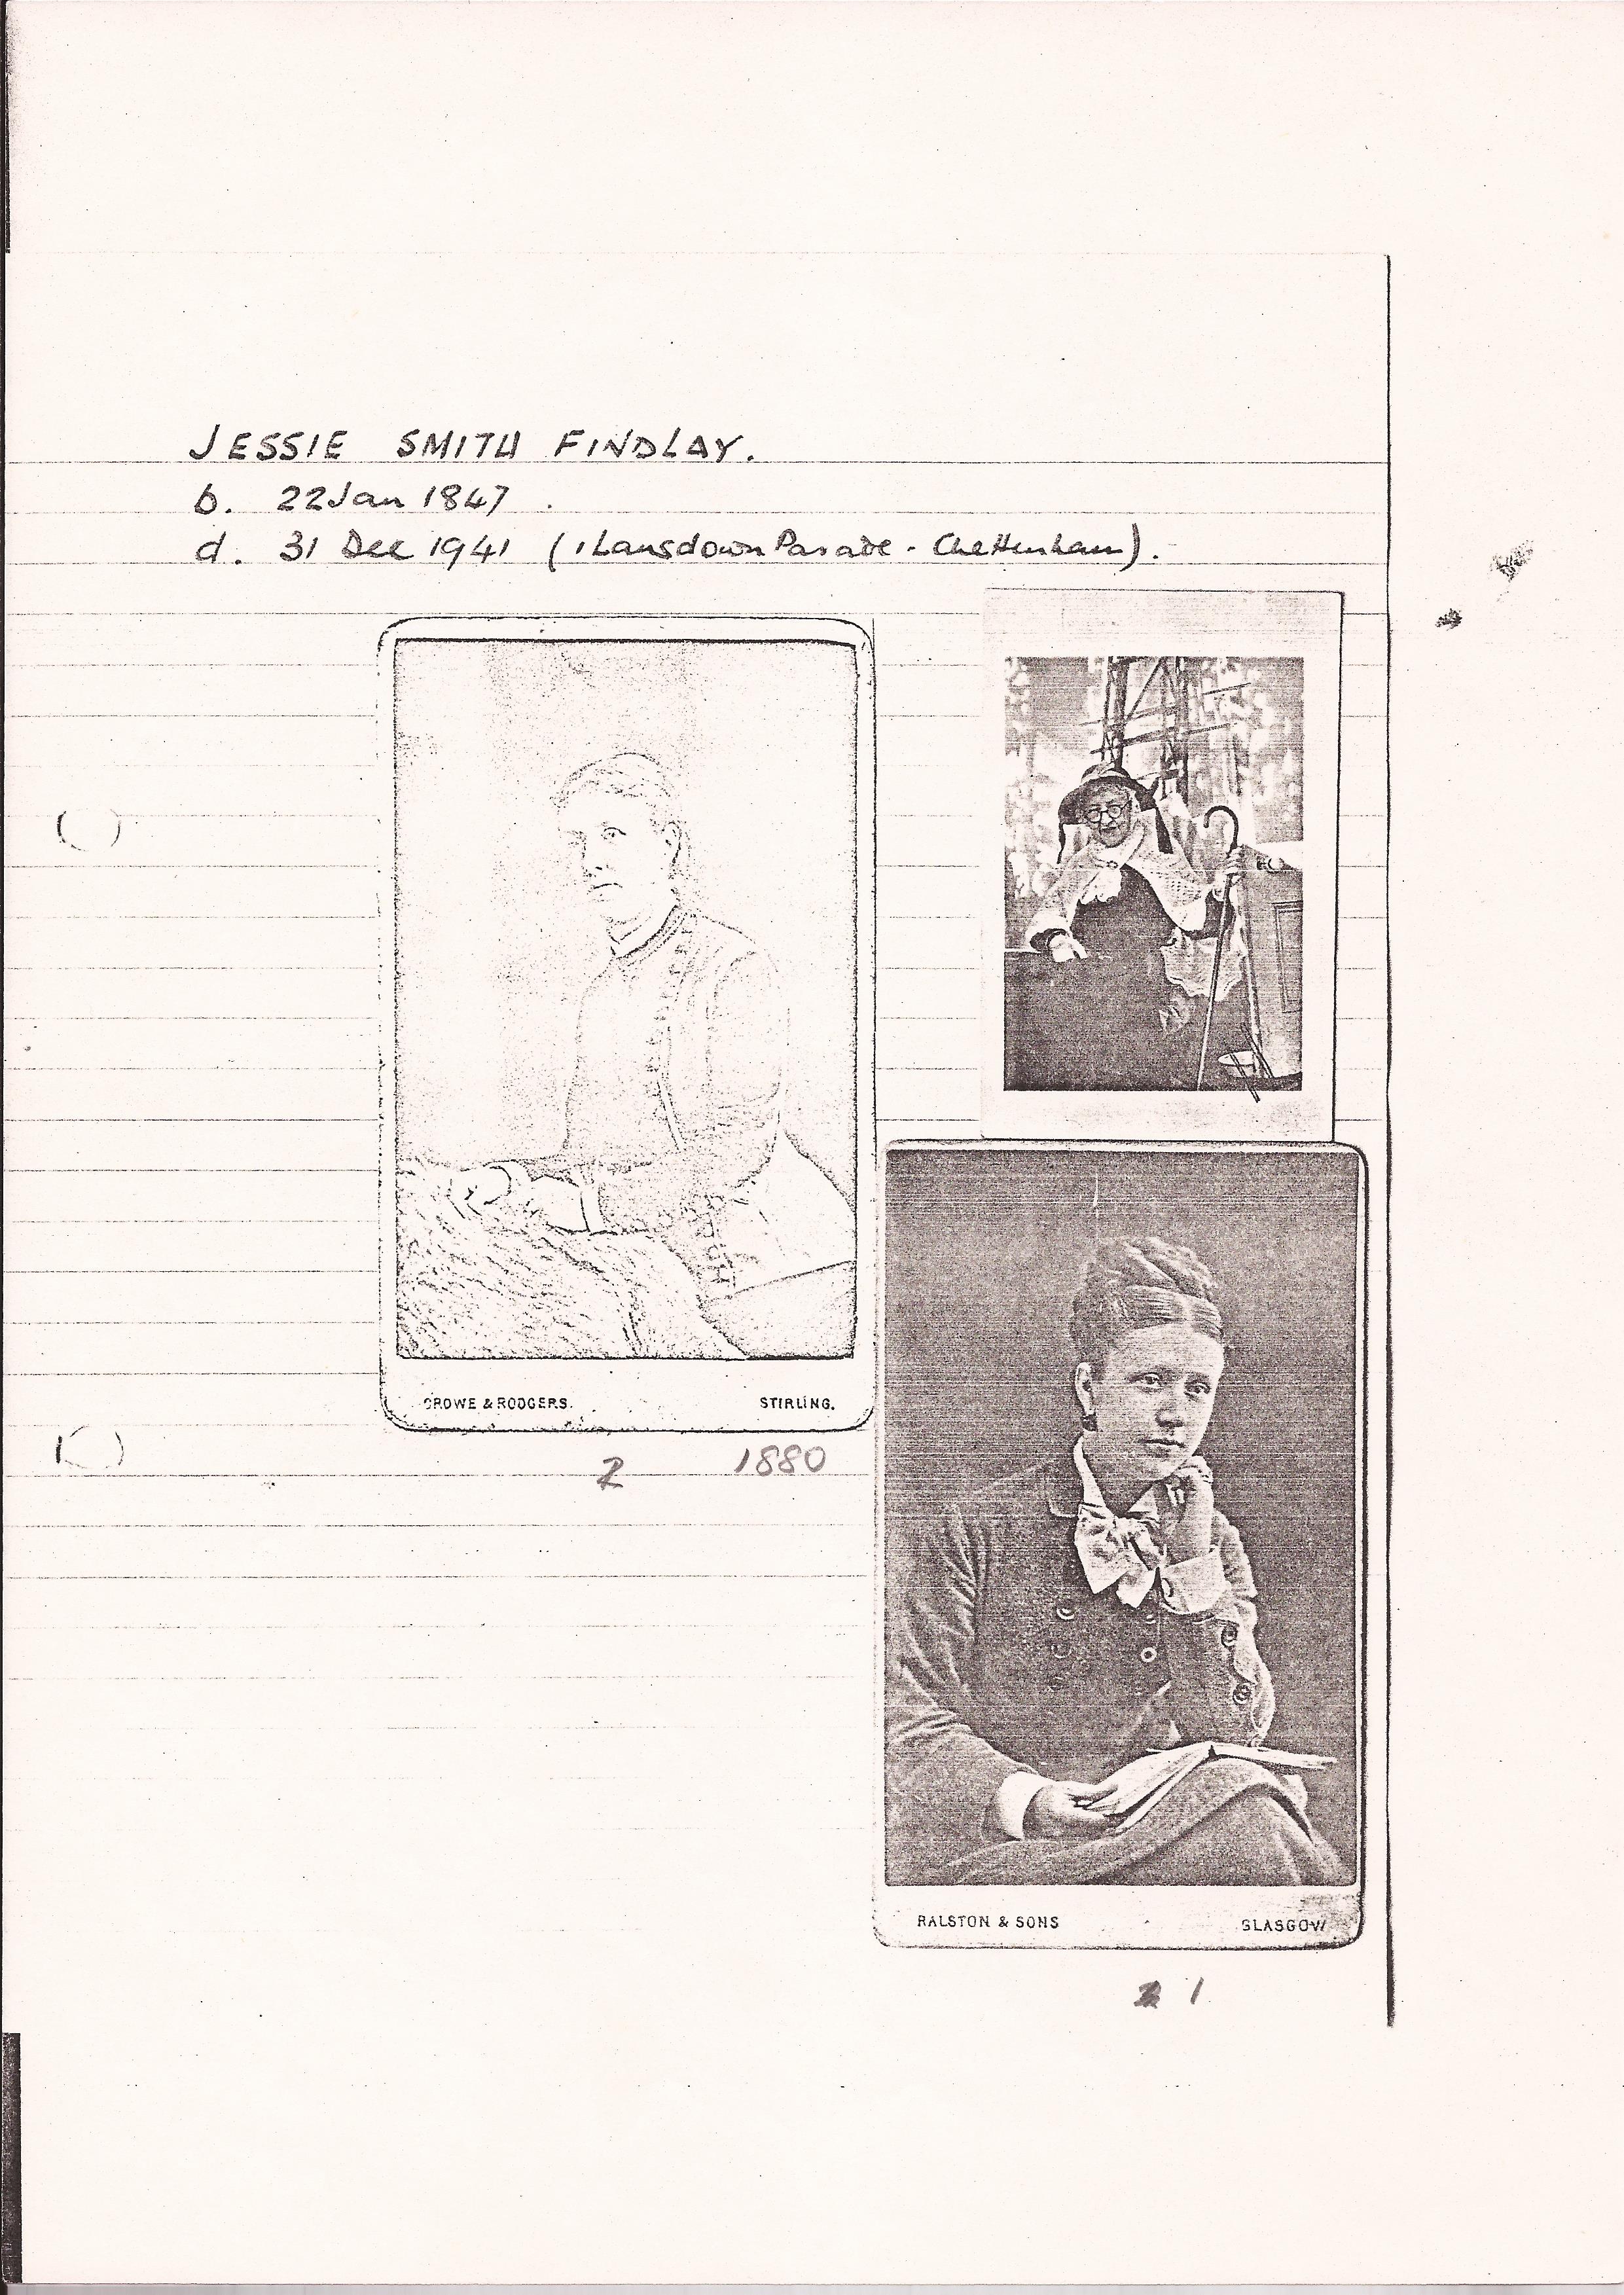 JESSIE SMITH FINDLAY.
b. 22 Jan 1847.
d. 31 Dec 1941 (1 Lansdown Parade - Cheltenham).
CROWE & RODGERS. STIRLING.
2 1880
RALSTON & SONS GLASGOW
1